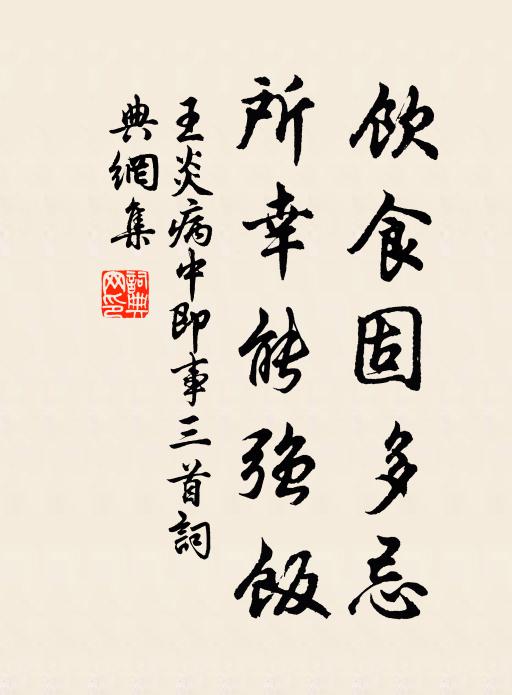 飲食固多忌
所幸能強飯
王炎病中即事三首詞
典網集
詞典網印